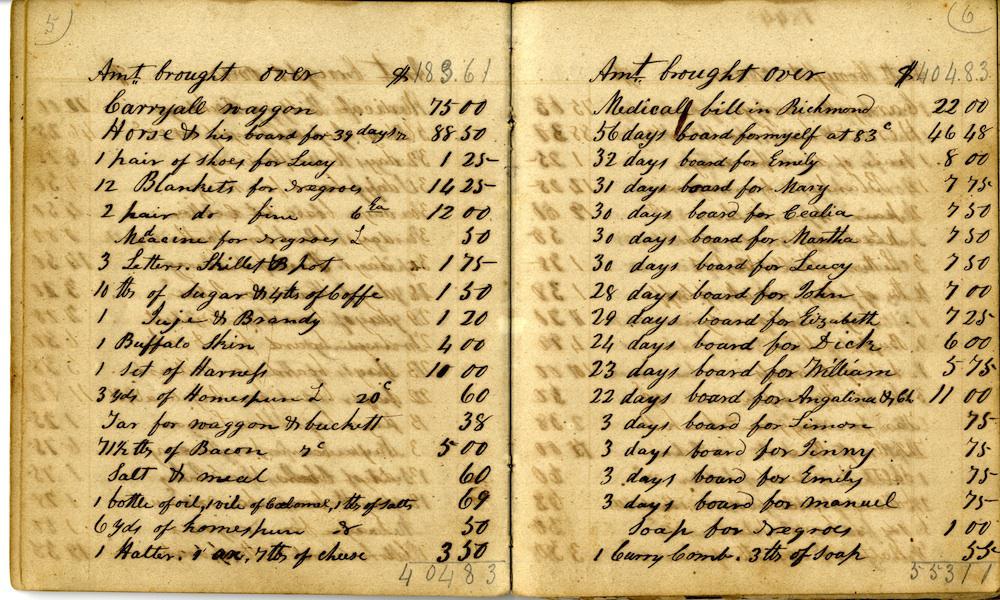 5
Amt. brought over $183.61
Carryall waggon 75 00
Horse & his board for 39 days 88 50
1 pair of shoes for Lucy 1 25
12 Blankets for Negroes 14 25
2 pair do fine 6 Ea 12 00
Medcine for Negroes 50
3 Letters. Skillet & pot 1 75
10 lbs of Sugar & 4 lbs of Coffe 1 50
1 Juje & Brandy 1 20
1 Buffalo Skin 4 00
1 set of Harness 10 00
3 yds of Homespun 20c 60
Tar for waggon & buckett 38
71½ lbs of Bacon 7c 5 00
Salt & meal 60
1 bottle of oil, 1 vile of Calomel, 1 lb of salts 69
6 yds of homespun 50
1 Halter. 1 ax, 7 lbs of cheese 3 50
404 83
6
Amt. brought over $404.83
Medicall bill in Richmond 22 00
56 days board for myself at 83c 46 48
32 days board for Emily 8 00
31 days board for Mary 7 75
30 days board for Cealia 7 50
30 days board for Martha 7 50
30 days board for Leucy 7 50
28 days board for John 7 00
29 days board for Elizabeth 7 25
24 days board for Dick 6 00
23 days board for William 5 75
22 days board for Angalina & Ch 11 00
3 days board for Simon 75
3 days board for Jinny 75
3 days board for Emily 75
3 days board for manuel 75
Soap for Negroes 1 00
1 Curry Comb. 3 lbs of Soap 55
553 11